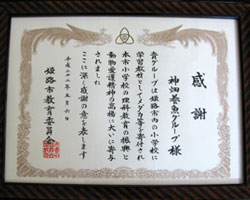 感謝
神畑養魚グループ様
貴グループは姫路市内の小学校に
学習教材としてメダカ等を寄付され
本市小学校の理科教育の振興と
動物愛護精神の高揚に大いに寄与
されました
ここに深く感謝の意を表します
平成二十二年五月六日
姫路市教育委員会